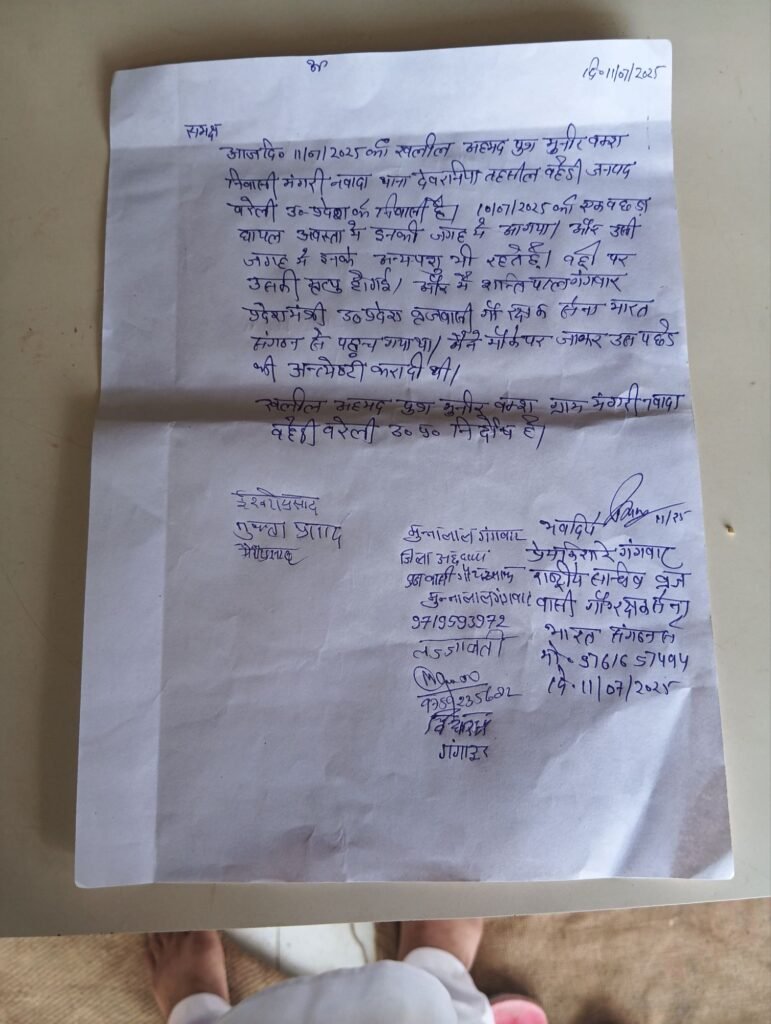 ॐ
दि॰ 11/07/2025
समक्ष
आज दि॰ 11/07/2025 को खलील अहमद पुत्र मुनीर वक्श
निवासी मंगरी नवादा थाना देवरनिया तहसील वहेडी जनपद
वरेली उ॰ प्रदेश के निवासी है। 10/07/2025 को एक वछड़ा
घायल अवस्ता में इनकी जगह में आगया। और उसी
जगह में इनके अन्य पशु भी रहते है। वही पर
उसकी मृत्यु होगई। और मैं शान्ति पाल गंगवार
प्रदेश मंत्री उ॰ प्रदेश वृजवासी गौ रक्षक सेना भारत
संगठन से पहुच गया था। मैंने मौके पर जाकर उस वछडे
की अन्त्येष्टी करा दी थी।
खलील अहमद पुत्र मुनीर वक्श ग्राम मंगरी नवादा
वहेडी वरेली उ॰ प्र॰ निर्दोष है।
ईश्वरी प्रसाद
प्रसाद
मुन्नालाल गंगवार
जिला अध्यक्ष
मुन्नालाल गंगवार
9719593972
लज्जावती
गंगवार
भवदिय
11/25
प्रेम किशोर गंगवार
राष्ट्रीय सचिव वृज
वासी गौ रक्षक सेना
भारत संगठन से
मो॰ 9761657494
दि॰ 11/07/2025